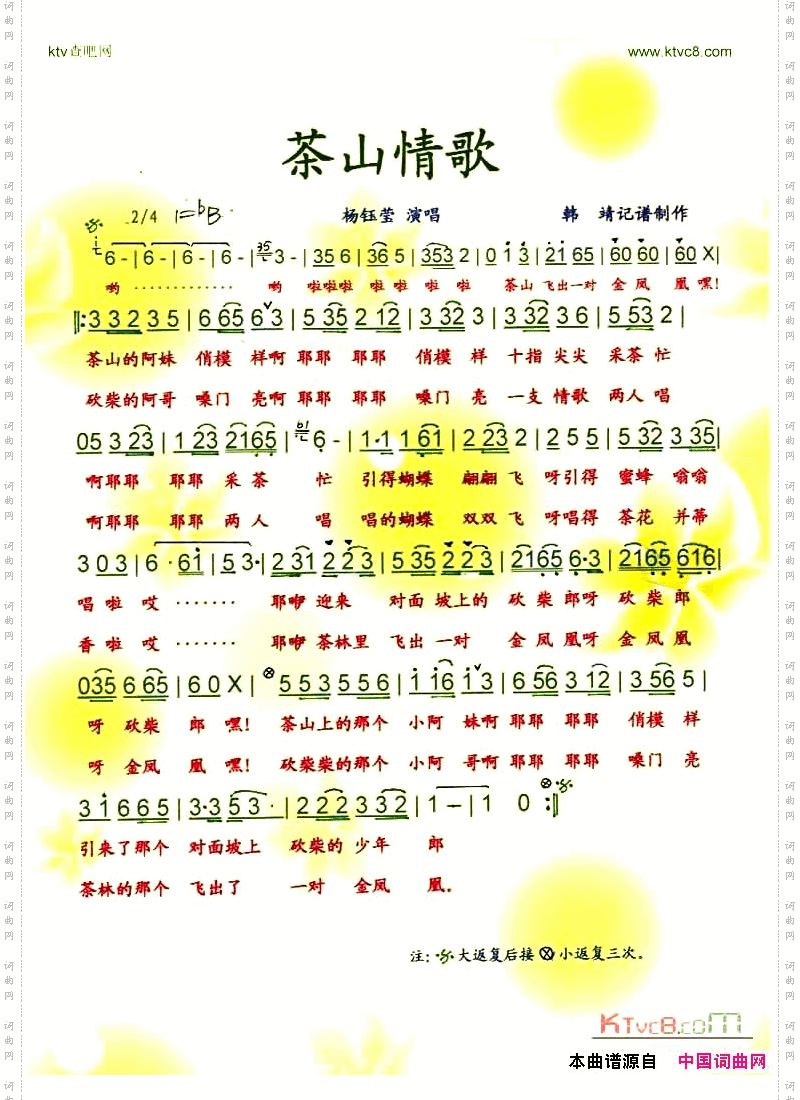 ktv查吧网 www.ktvc8.com
茶山情歌
2/4 1=bB 杨钰莹 演唱 韩 靖记谱制作
6 - | 6 - | 6 - | 6 - | 3 - | 35 6 | 36 5 | 353 2 | 0 1 3 | 21 65 | 60 60 | 60 X |
哟 ············· 哟 啦啦啦 啦啦 啦 啦 茶山 飞出一对 金 凤 凰 嘿!
‖: 3 32 3 5 | 6 65 6 3 | 5 35 2 12 | 3 32 3 | 3 32 3 6 | 5 53 2 |
茶山的阿妹 俏模 样啊 耶耶 耶耶 俏模 样 十指 尖尖 采茶 忙
砍柴的阿哥 嗓门 亮啊 耶耶 耶耶 嗓门 亮 一支 情歌 两人 唱
05 3 23 | 1 23 2165 | 6 - | 1·1 1 61 | 2 23 2 | 2 5 5 | 5 32 3 35 |
啊耶耶 耶耶 采 茶 忙 引得蝴蝶 翩翩 飞 呀引得 蜜蜂 嗡嗡
啊耶耶 耶耶 两 人 唱 唱的蝴蝶 双双 飞 呀唱得 茶花 并蒂
3 0 3 | 6 · 61 | 5 3· | 2 31 2 23 | 5 35 2 23 | 2165 6·3 | 2165 616 |
唱 啦 哎 ······· 耶咿 迎来 对面 坡上的 砍 柴 郎呀 砍 柴 郎
香 啦 哎 ······· 耶咿 茶林里 飞出 一对 金 凤 凰呀 金 凤 凰
035 6 65 | 6 0 X | ⊗ 5 5 3 5 5 6 | 1 16 1 3 | 6 56 3 12 | 3 56 5 |
呀 砍柴 郎 嘿! 茶山上的那个 小阿 妹啊 耶耶 耶耶 俏模 样
呀 金凤 凰 嘿! 砍柴柴的那个 小阿 哥啊 耶耶 耶耶 嗓门 亮
3 1 6 6 5 | 3·3 5 3 · | 2 2 2 3 32 | 1 - | 1 0 :‖
引来了那个 对面坡上 砍柴的 少年 郎
茶林的那个 飞出了 一对 金凤 凰。
注: 大返复后接 ⊗ 小返复三次。
KTvc8.com
本曲谱源自 中国词曲网
词曲网